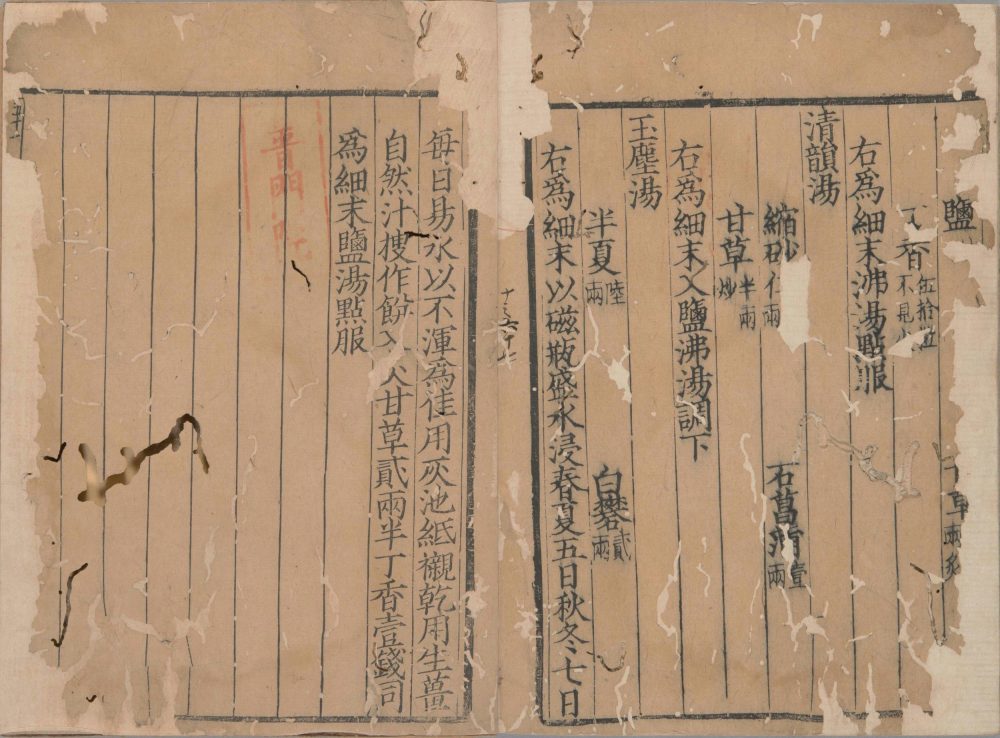 鹽 草兩炙
香 不見
右爲細末沸湯點服
清韻湯
縮砂仁兩 石菖蒲壹兩
甘草半兩炒
右爲細末入鹽沸湯調下
玉塵湯
半夏陸兩 白礬貳兩
右爲細末以磁瓶盛水浸春夏五日秋冬七日
每日易水以不渾爲佳用灰池紙襯乾用生薑
自然汁搜作餅入 甘草貳兩半丁香壹錢同
爲細末鹽湯點服
普門院